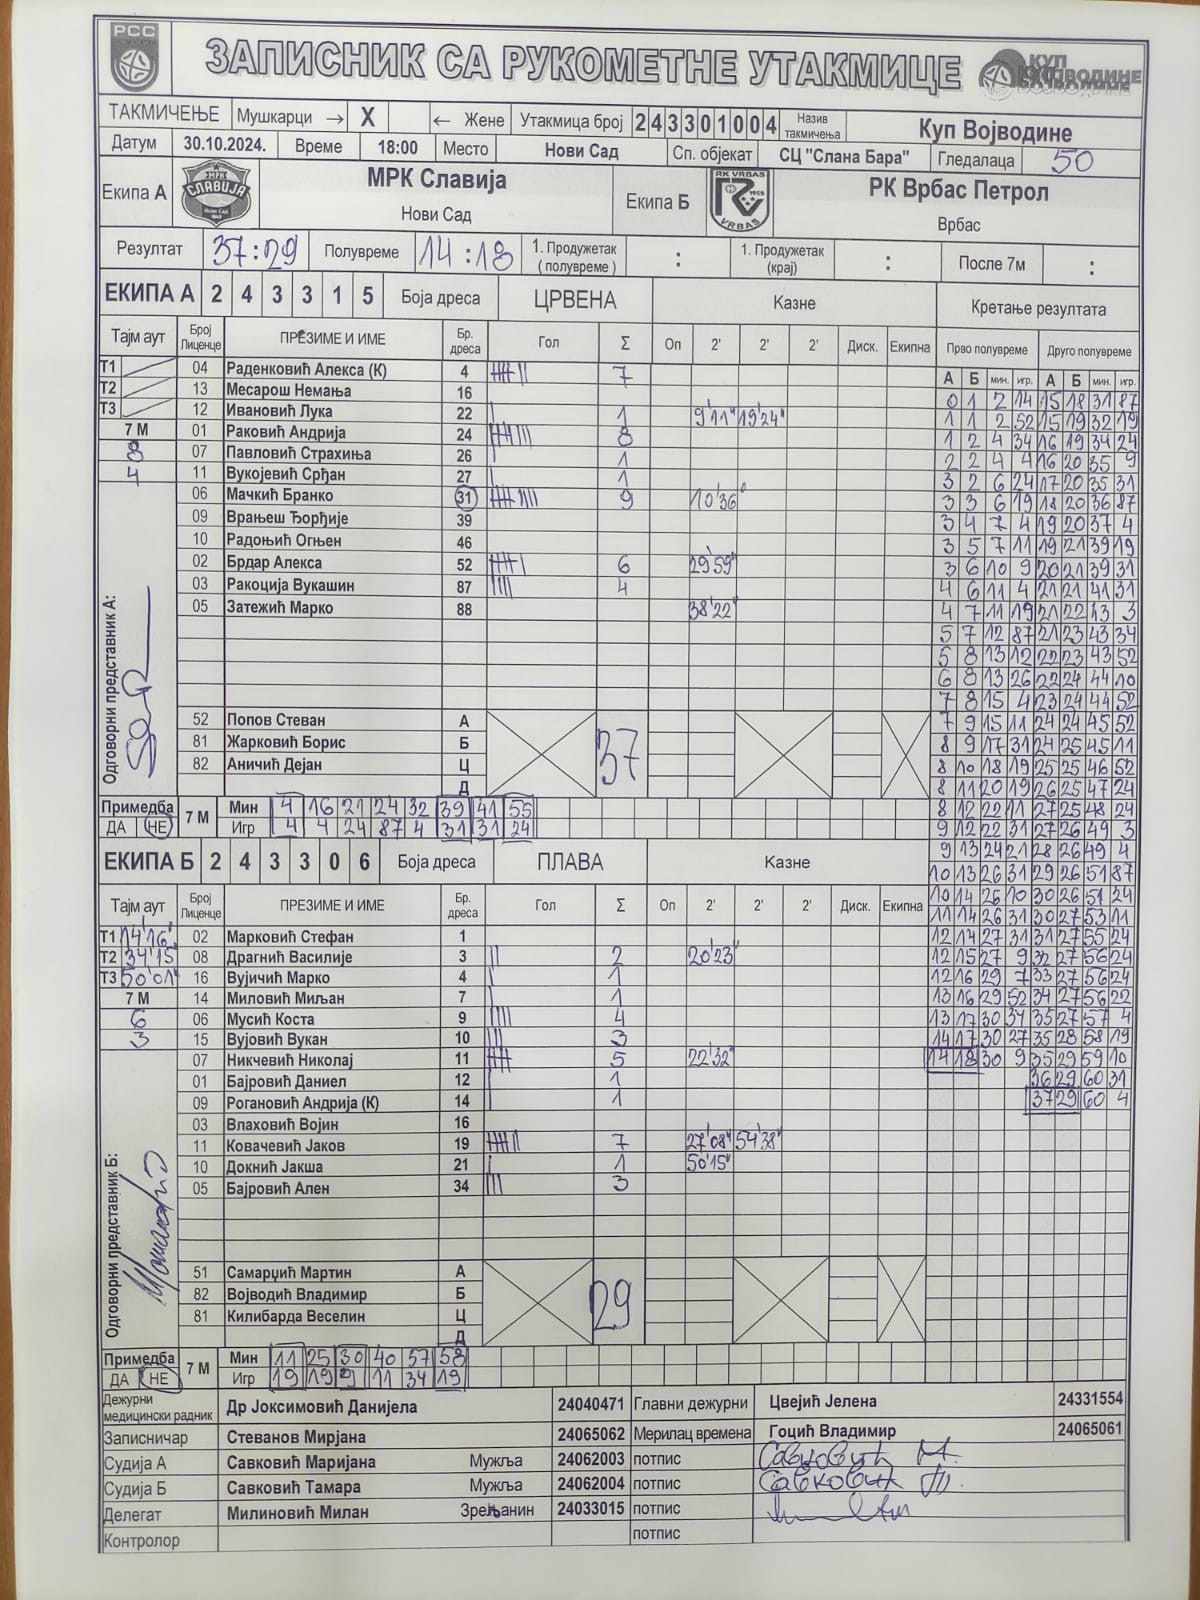 РСС
ЗАПИСНИК СА РУКОМЕТНЕ УТАКМИЦЕ
КУП ВОЈВОДИНЕ
ТАКМИЧЕЊЕ Мушкарци → X ← Жене Утакмица број 2 4 3 3 0 1 0 0 4 Назив такмичења Куп Војводине
Датум 30.10.2024. Време 18:00 Место Нови Сад Сп. објекат СЦ "Слана Бара" Гледалаца 50
Екипа А МРК СЛАВИЈА МРК Славија Нови Сад Екипа Б RK VRBAS VRBAS РК Врбас Петрол Врбас
Резултат 37:29 Полувреме 14:18 1. Продужетак (полувреме) : 1. Продужетак (крај) : После 7м :
ЕКИПА А 2 4 3 3 1 5 Боја дреса ЦРВЕНА Казне Кретање резултата
Тајм аут Број Лиценце ПРЕЗИМЕ И ИМЕ Бр. дреса Гол Σ Оп 2' 2' 2' Диск. Екипна Прво полувреме Друго полувреме
А Б мин. игр. А Б мин. игр.
Т1 04 Раденковић Алекса (К) 4 7
Т2 13 Месарош Немања 16
Т3 12 Ивановић Лука 22 1 9'11" 19'24"
7 М 01 Раковић Андрија 24 8
8 07 Павловић Страхиња 26 1
4 11 Вукојевић Срђан 27 1
06 Мачкић Бранко 31 9 10'36"
09 Врањеш Ђорђије 39
10 Радоњић Огњен 46
02 Брдар Алекса 52 6 29'59"
03 Ракоција Вукашин 87 4
05 Затежић Марко 88 38'22"
Одговорни представник А:
52 Попов Стеван А
81 Жарковић Борис Б
82 Аничић Дејан Ц
Д
37
Примедба ДА НЕ 7 М
Мин 4 16 21 24 32 39 41 55
Игр 4 4 24 87 4 31 31 24
0 1 2 14 15 18 31 87
1 1 2 52 15 19 32 19
1 2 4 34 16 19 34 24
2 2 4 4 16 20 35 9
3 2 6 24 17 20 35 31
3 3 6 19 18 20 36 87
3 4 7 4 19 20 37 4
3 5 7 11 19 21 39 19
3 6 10 9 20 21 39 31
4 6 11 4 21 21 41 31
4 7 11 19 21 22 43 3
5 7 12 87 21 23 43 34
5 8 13 12 22 23 43 52
6 8 13 26 22 24 44 10
7 8 15 4 23 24 44 52
7 9 15 11 24 24 45 52
8 9 17 31 24 25 45 11
8 10 18 19 25 25 46 52
8 11 20 19 26 25 47 24
8 12 22 11 27 25 48 24
9 12 22 31 27 26 49 3
9 13 24 21 28 26 49 4
10 13 26 31 29 26 51 87
10 14 26 10 30 26 51 24
11 14 26 31 30 27 53 11
12 14 27 31 31 27 55 24
12 15 27 9 32 27 56 24
12 16 29 7 33 27 56 24
13 16 29 52 34 27 56 22
13 17 30 34 35 27 57 4
14 17 30 27 35 28 58 19
14 18 30 9 35 29 59 10
36 29 60 31
37 29 60 4
ЕКИПА Б 2 4 3 3 0 6 Боја дреса ПЛАВА Казне
Тајм аут Број Лиценце ПРЕЗИМЕ И ИМЕ Бр. дреса Гол Σ Оп 2' 2' 2' Диск. Екипна
Т1 14'16" 02 Марковић Стефан 1
Т2 34'15 08 Драгнић Василије 3 2 20'23"
Т3 50'01" 16 Вујичић Марко 4 1
7 М 14 Миловић Миљан 7 1
6 06 Мусић Коста 9 4
3 15 Вујовић Вукан 10 3
07 Никчевић Николај 11 5 22'32"
01 Бајровић Даниел 12 1
09 Рогановић Андрија (К) 14 1
03 Влаховић Војин 16
11 Ковачевић Јаков 19 7 27'08" 54'38"
10 Докнић Јакша 21 1 50'15"
05 Бајровић Ален 34 3
Одговорни представник Б:
51 Самарџић Мартин А
82 Војводић Владимир Б
81 Килибарда Веселин Ц
Д
29
Примедба ДА НЕ 7 М
Мин 11 25 30 40 57 58
Игр 19 19 9 11 34 19
Дежурни медицински радник Др Јоксимовић Данијела 24040471 Главни дежурни Цвејић Јелена 24331554
Записничар Стеванов Мирјана 24065062 Мерилац времена Гоцић Владимир 24065061
Судија А Савковић Маријана Мужља 24062003 потпис Савковић М.
Судија Б Савковић Тамара Мужља 24062004 потпис Савковић Т.
Делегат Милиновић Милан Зрењанин 24033015 потпис
Контролор потпис